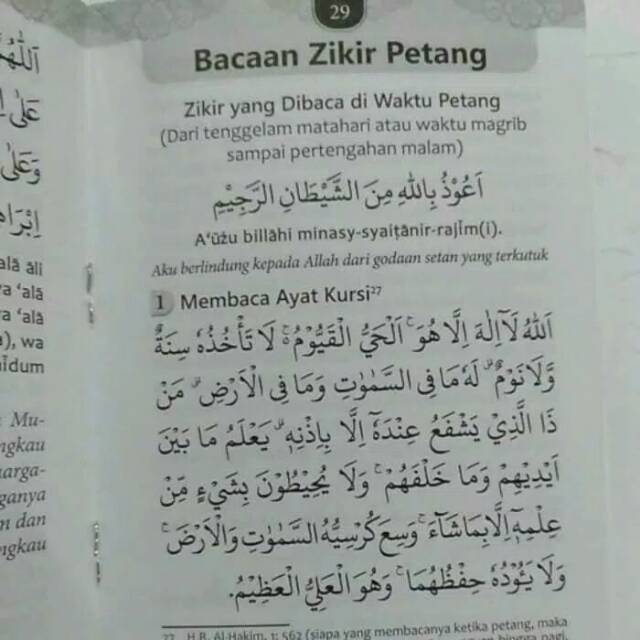 29
Bacaan Zikir Petang
Zikir yang Dibaca di Waktu Petang
(Dari tenggelam matahari atau waktu magrib
sampai pertengahan malam)
اَعُوْذُ بِاللّٰهِ مِنَ الشَّيْطَانِ الرَّجِيْمِ
A‘ūżu billāhi minasy-syaiṭānir-rajīm(i).
Aku berlindung kepada Allah dari godaan setan yang terkutuk
1 Membaca Ayat Kursi²⁷
اَللّٰهُ لَآ اِلٰهَ اِلَّا هُوَۚ اَلْحَيُّ الْقَيُّوْمُ ەۚ لَا تَأْخُذُهٗ سِنَةٌ
وَّلَا نَوْمٌۗ لَهٗ مَا فِى السَّمٰوٰتِ وَمَا فِى الْاَرْضِۗ مَنْ
ذَا الَّذِيْ يَشْفَعُ عِنْدَهٗٓ اِلَّا بِاِذْنِهٖۗ يَعْلَمُ مَا بَيْنَ
اَيْدِيْهِمْ وَمَا خَلْفَهُمْۚ وَلَا يُحِيْطُوْنَ بِشَيْءٍ مِّنْ
عِلْمِهٖٓ اِلَّا بِمَا شَاۤءَۚ وَسِعَ كُرْسِيُّهُ السَّمٰوٰتِ وَالْاَرْضَۚ
وَلَا يَـُٔوْدُهٗ حِفْظُهُمَاۚ وَهُوَ الْعَلِيُّ الْعَظِيْمُ.
27 H.R. Al-Hakim, 1: 562 (siapa yang membacanya ketika petang, maka